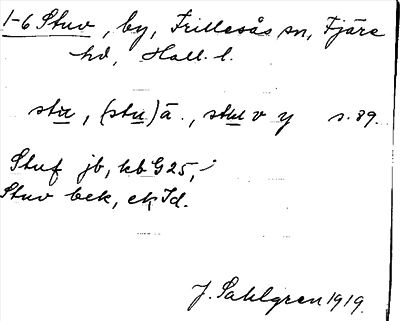 1-6 Stuv, by, Frillesås sn, Fjäre
hd, Hall. l.
stu, (stu)ā., stu v y s. 89.
Stuf jb, kb G 25,
Stuv bek, ek Id.
J. Sahlgren 1919.